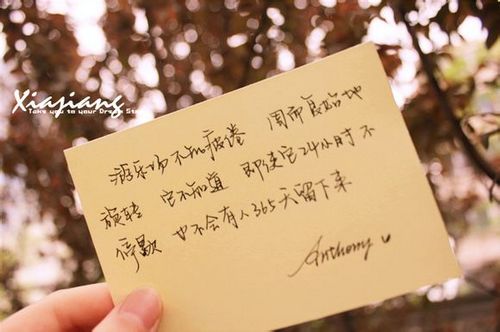 Xiasiang
Take you to your Dream Sta
游乐场不知疲倦 周而复始地
旋转 它不知道 即使它24小时不
停歇 也不会有人365天留下来
Anthony